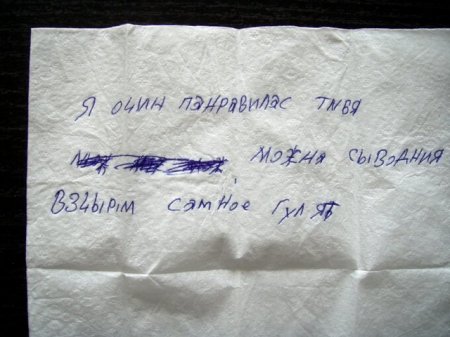 Я очин панравилас тивя
можна сыводния
взчырим самное гулят